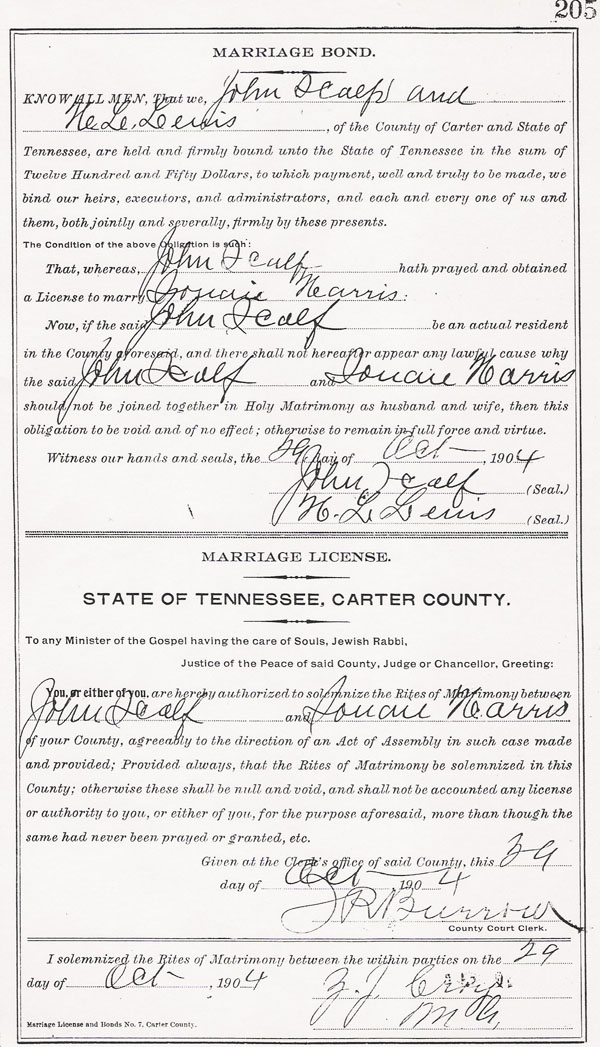 205
MARRIAGE BOND.
KNOW ALL MEN, That we, John Scalf and
H. L. Lewis, of the County of Carter and State of
Tennessee, are held and firmly bound unto the State of Tennessee in the sum of
Twelve Hundred and Fifty Dollars, to which payment, well and truly to be made, we
bind our heirs, executors, and administrators, and each and every one of us and
them, both jointly and severally, firmly by these presents.
The Condition of the above Obligation is such:
That, whereas, John Scalf hath prayed and obtained
a License to marry Harris:
Now, if the said John Scalf be an actual resident
in the County aforesaid, and there shall not hereafter appear any lawful cause why
the said John Scalf and Harris
should not be joined together in Holy Matrimony as husband and wife, then this
obligation to be void and of no effect; otherwise to remain in full force and virtue.
Witness our hands and seals, the 29 day of Oct, 1904
John Scalf (Seal.)
H. L. Lewis (Seal.)
MARRIAGE LICENSE.
STATE OF TENNESSEE, CARTER COUNTY.
To any Minister of the Gospel having the care of Souls, Jewish Rabbi,
Justice of the Peace of said County, Judge or Chancellor, Greeting:
You, or either of you, are hereby authorized to solemnize the Rites of Matrimony between
John Scalf and Harris
of your County, agreeably to the direction of an Act of Assembly in such case made
and provided; Provided always, that the Rites of Matrimony be solemnized in this
County; otherwise these shall be null and void, and shall not be accounted any license
or authority to you, or either of you, for the purpose aforesaid, more than though the
same had never been prayed or granted, etc.
Given at the Clerk's office of said County, this 29
day of Oct 1904
J R Burrow
County Court Clerk.
I solemnized the Rites of Matrimony between the within parties on the 29
day of Oct, 1904 Z. J.
M G,
Marriage License and Bonds No. 7, Carter County.